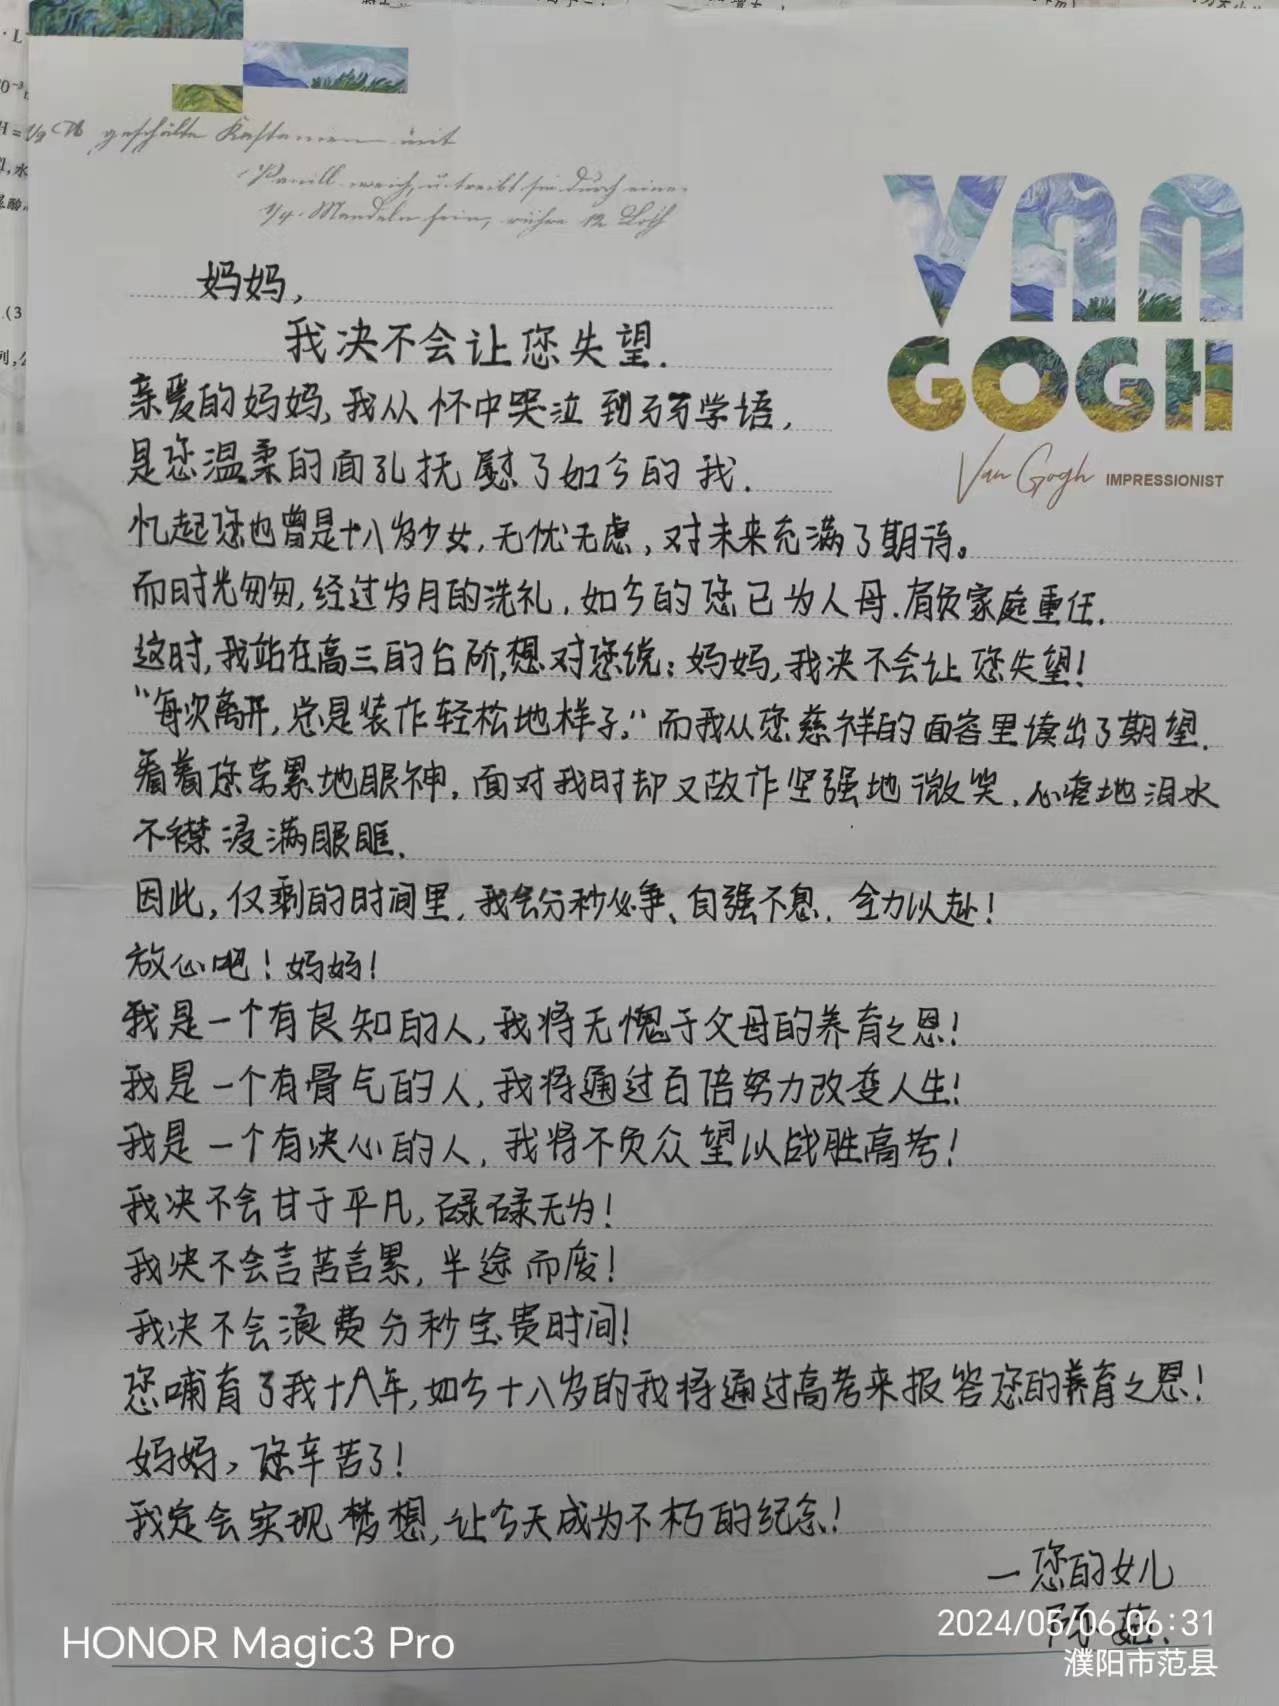 妈妈，
我决不会让您失望.
亲爱的妈妈，我从怀中哭泣到丂丂学语，
是您温柔的面孔抚慰了如今的我.
忆起您也曾是十八岁少女，无忧无虑，对未来充满了期待。
而时光匆匆，经过岁月的洗礼，如今的您已为人母.肩负家庭重任.
这时，我站在高三的台阶，想对您说：妈妈，我决不会让您失望！
“每次离开，总是装作轻松地样子，”而我从您慈祥的面容里读出了期望.
看着您劳累地眼神，面对我时却又故作坚强地微笑，心疼地泪水
不襟浸满眼眶.
因此，仅剩的时间里，我会分秒必争、自强不息，全力以赴！
放心吧！妈妈！
我是一个有良知的人，我将无愧于父母的养育之恩！
我是一个有骨气的人，我将通过百倍努力改变人生！
我是一个有决心的人，我将不负众望以战胜高考！
我决不会甘于平凡，碌碌无为！
我决不会言苦言累，半途而废！
我决不会浪费分秒宝贵时间！
您哺育了我十八年，如今十八岁的我将通过高考来报答您的养育之恩！
妈妈，您辛苦了！
我定会实现梦想，让今天成为不朽的纪念！
一您的女儿
VAN
GOGH
Van Gogh IMPRESSIONIST
HONOR Magic3 Pro
2024/05/06 06:31
濮阳市范县